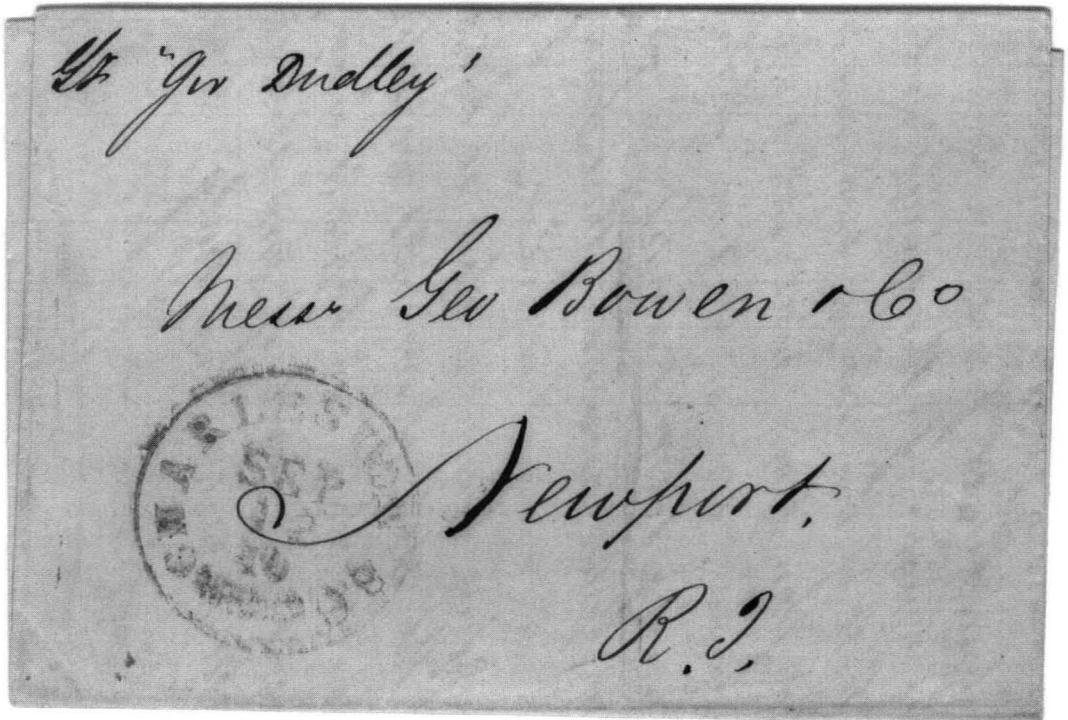 "Gov Dudley"
Messr Geo Bowen & Co
Newport.
R. I.
CHARLESTON S C
SEP